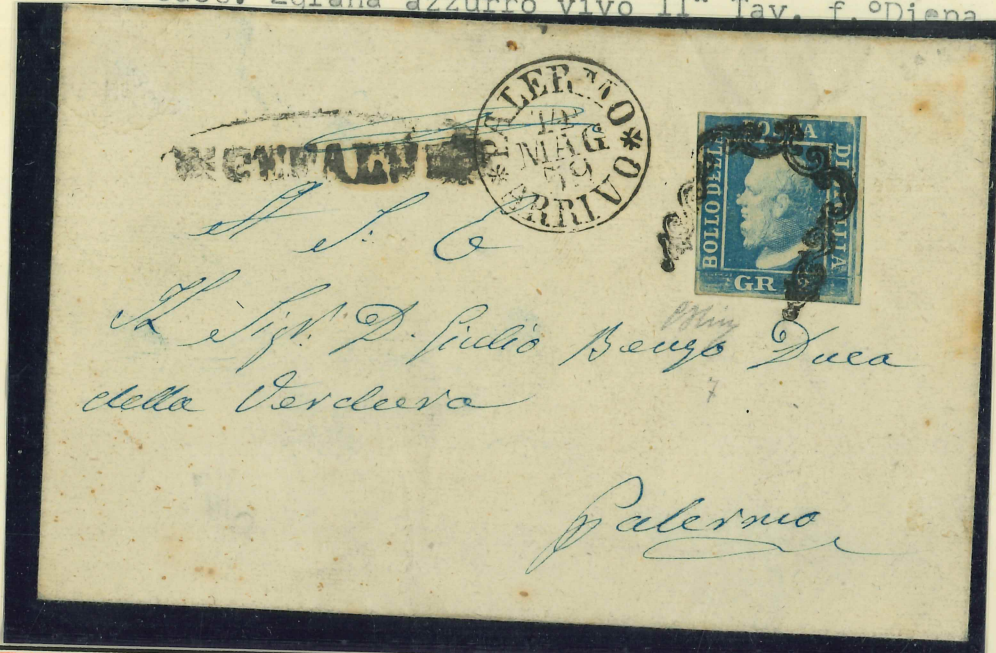 2grana azzurro vivo IIª Tav. f.ºDiena
PALERMO
14
MAG
59
*ARRIVO*
BOLLO DELLA
POSTA
DI SICILIA
GR
A S. E
Il Sigr. D. Giulio Benzo Duca
della Verdura
7
Palermo